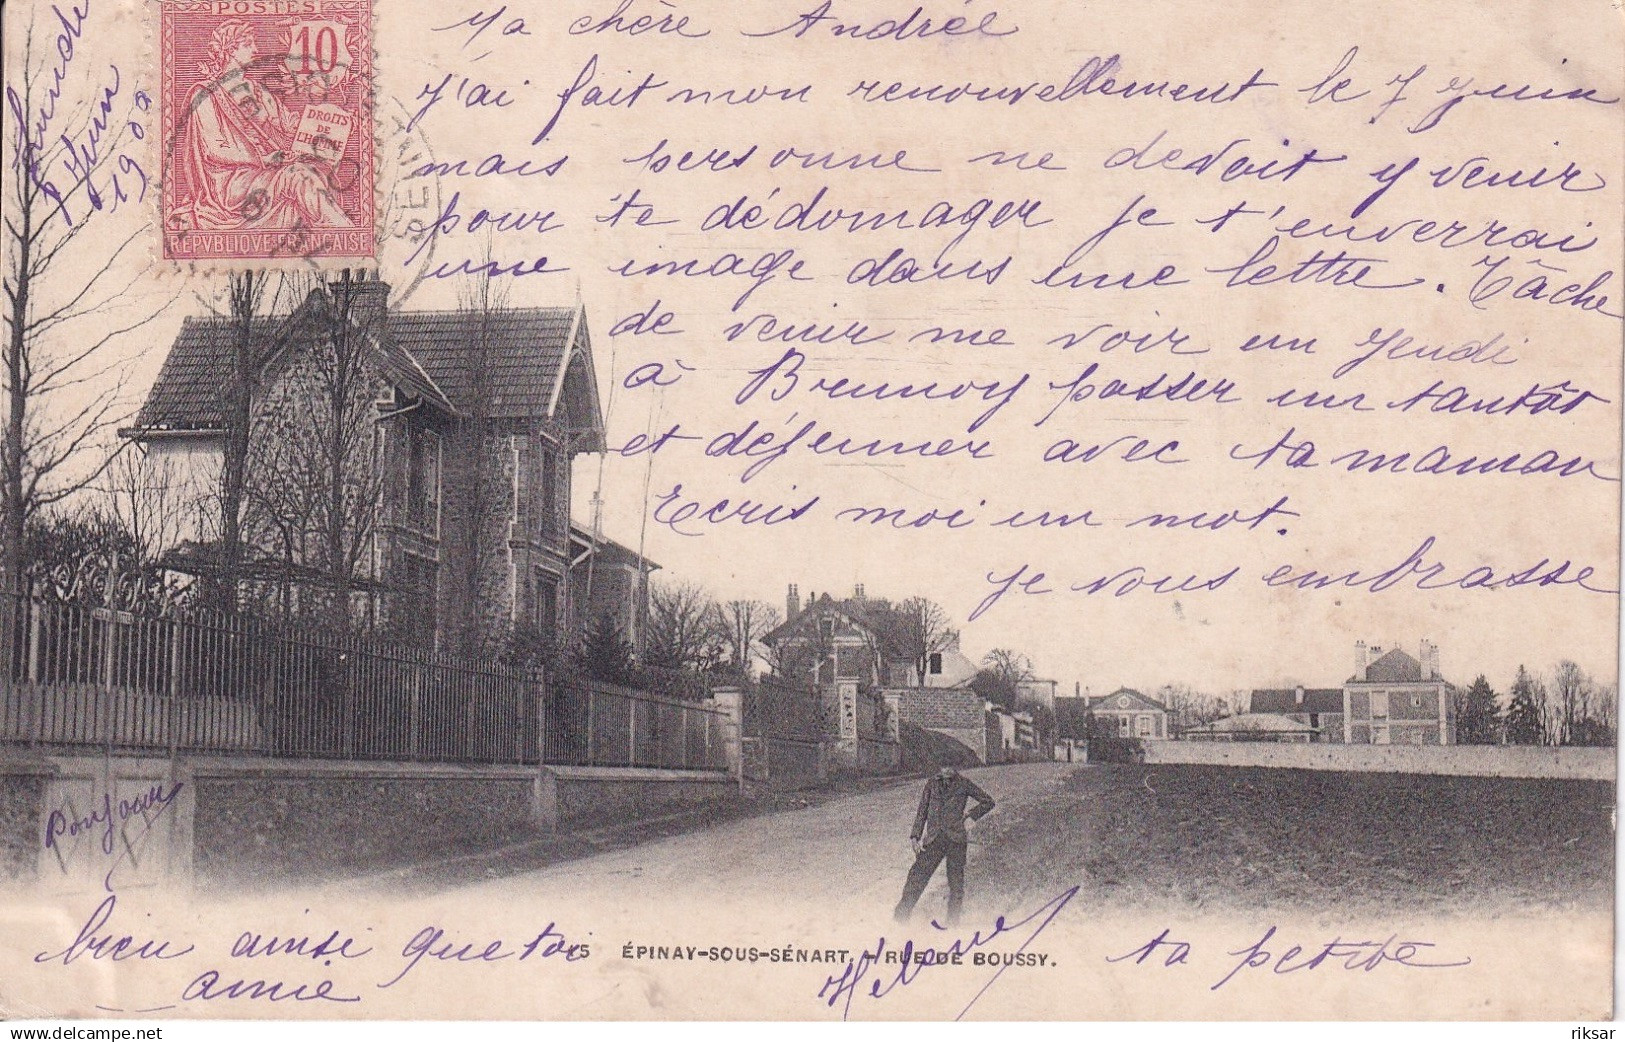 Lundi
8 Juin
190
POSTES
10
DROITS
DE
L'HOMME
REPVBLIQUE FRANÇAISE
Ma chère Andrée
J'ai fait mon renouvellement le 7 Juin
mais personne ne devait y venir
pour te dédomager je t'enverrai
une image dans une lettre. Tâche
de venir me voir un Jeudi
à Brunoy passer un tantôt
et déjeuner avec ta maman
Ecris moi un mot.
je vous embrasse
bien ainsi que toi ta petite
amie Hélène
Bonjour
15 ÉPINAY-SOUS-SÉNART. - RUE DE BOUSSY.
riksar